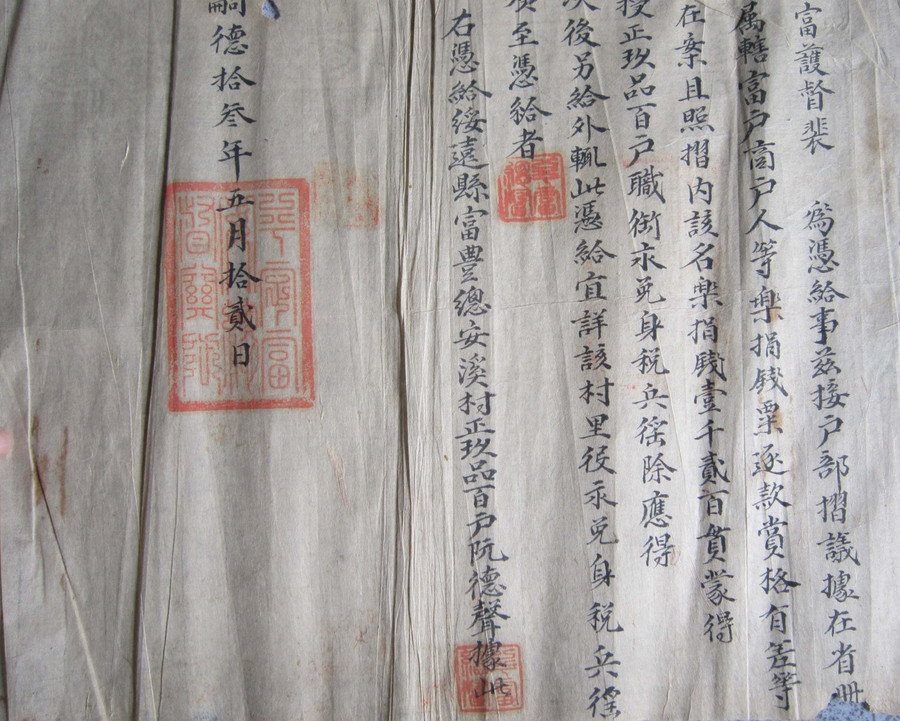 富護督裴 為憑給事茲接戶部摺議據在省冊
属轄富戶商戶人等樂捐錢票逐款賞格有差等
在案且照摺内該名樂捐錢壹千貳百貫蒙得
授正玖品百戶職銜永免身税兵徭除應得
次後另給外輒此憑給宜詳該村里役永免身税兵徭
至憑給者
右憑給綏遠縣富豊總安溪村正玖品百戶阮德聲據此
嗣德拾叁年五月拾貳日